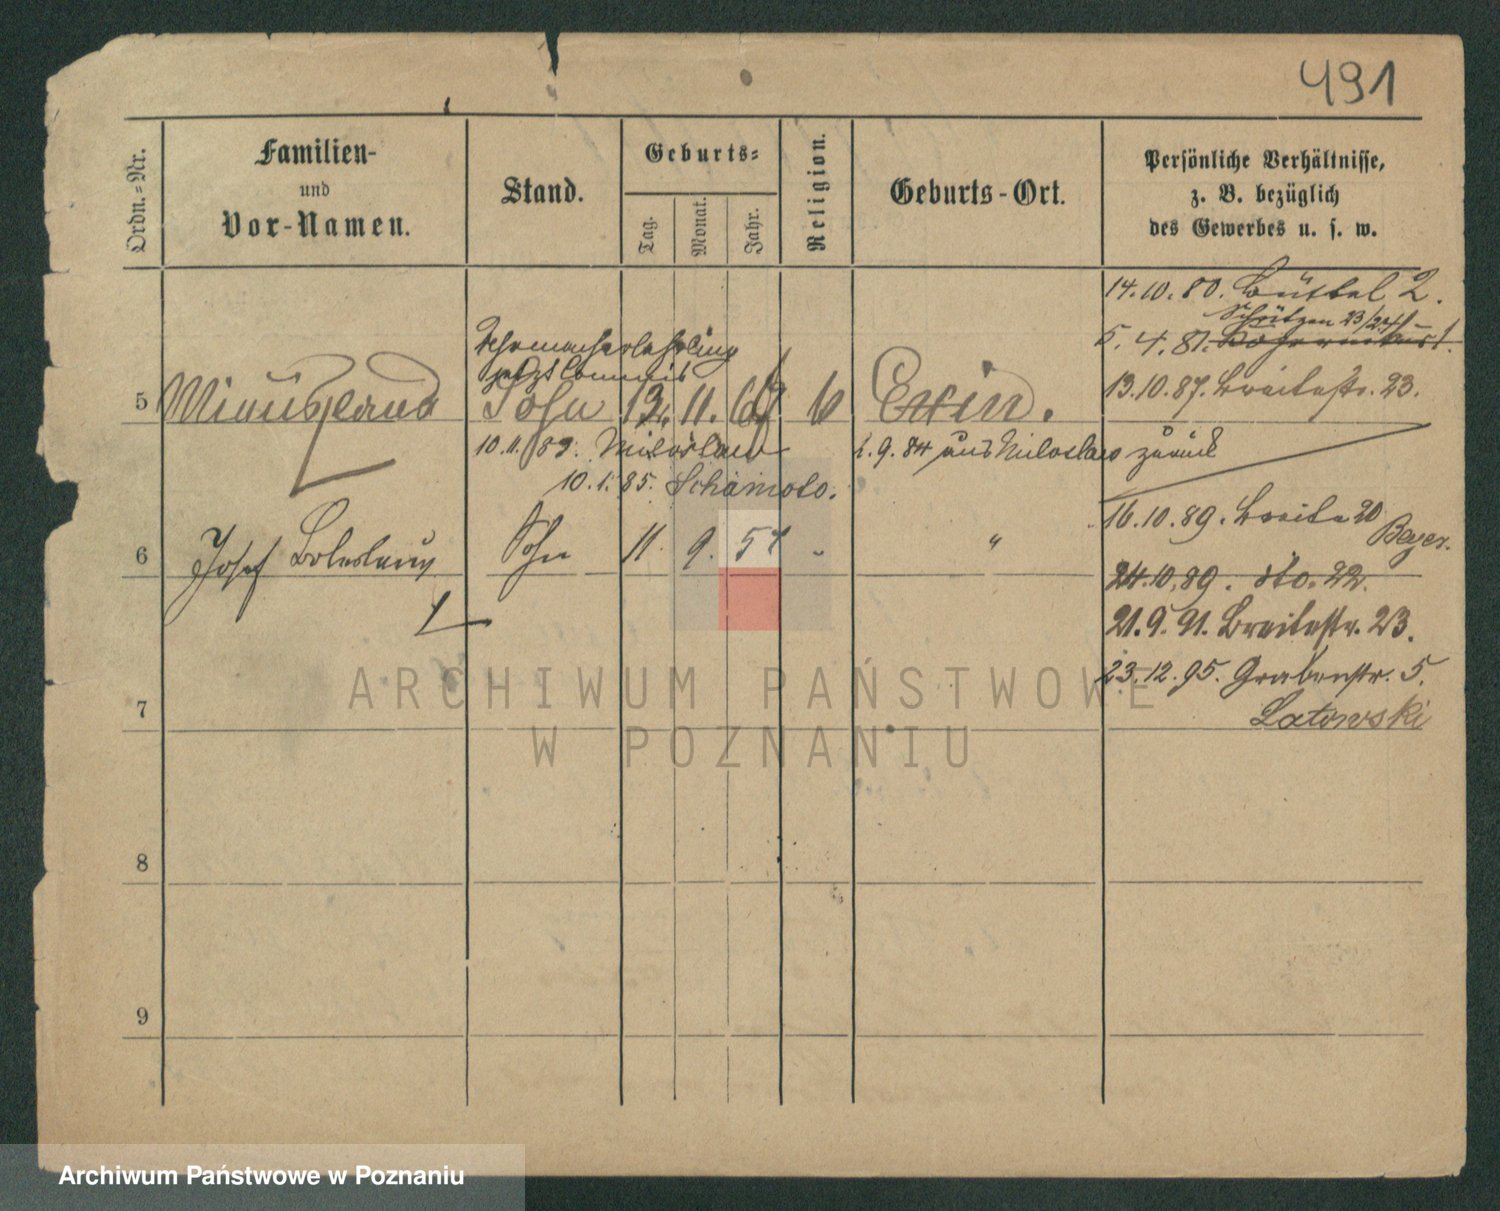 491
Ordn.-Nr.
Familien-
und
Vor-Namen.
Stand.
Geburts-
Tag.
Monat.
Jahr.
Religion.
Geburts-Ort.
Persönliche Verhältnisse,
z. B. bezüglich
des Gewerbes u. s. w.
14.10.80. Büttel 2.
Schützen 23/24
5.4.81.
13.10.87. Breitestr. 23.
5
Sohn 11. 6 Exin.
10.11.83. Miloslaw
1.9.84 aus Miloslaw zurück
10.1.85. Schamoto.
16.10.89. Breite 20
Beyer.
6 Josef Boleslaus Sohn 11. 9. 57 - "
24.10.89. dto. 22.
21.9.91. Breitestr. 23.
23.12.95. Grabenstr. 5.
Latowski
7
8
9
ARCHIWUM PAŃSTWOWE
W POZNANIU
Archiwum Państwowe w Poznaniu